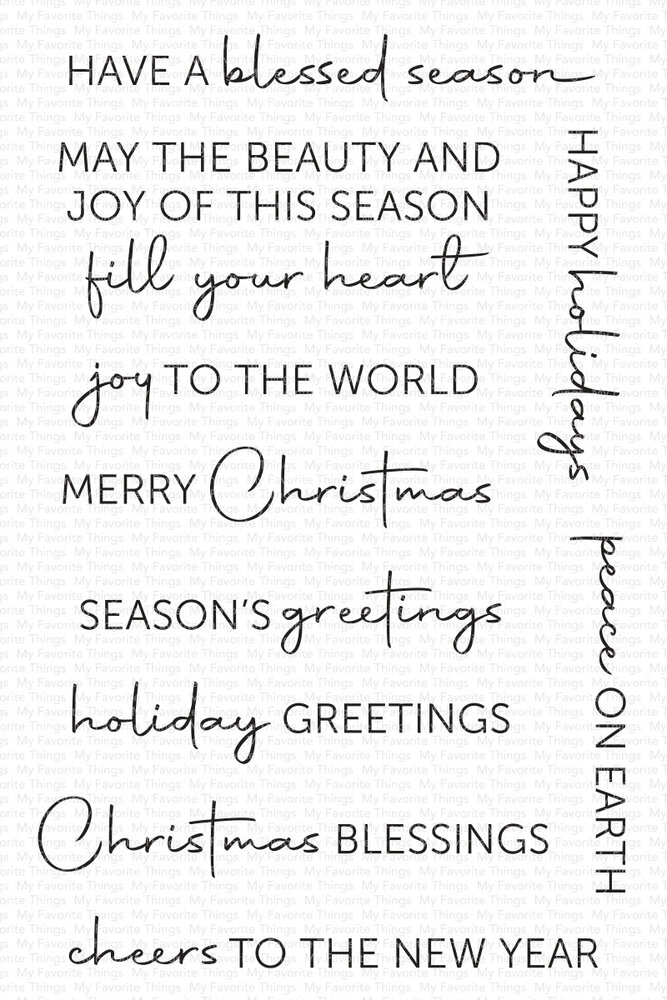 HAVE A blessed season
MAY THE BEAUTY AND
JOY OF THIS SEASON
fill your heart
joy TO THE WORLD
MERRY Christmas
SEASON'S greetings
holiday GREETINGS
Christmas BLESSINGS
cheers TO THE NEW YEAR
HAPPY holidays
peace ON EARTH
My Favorite Things